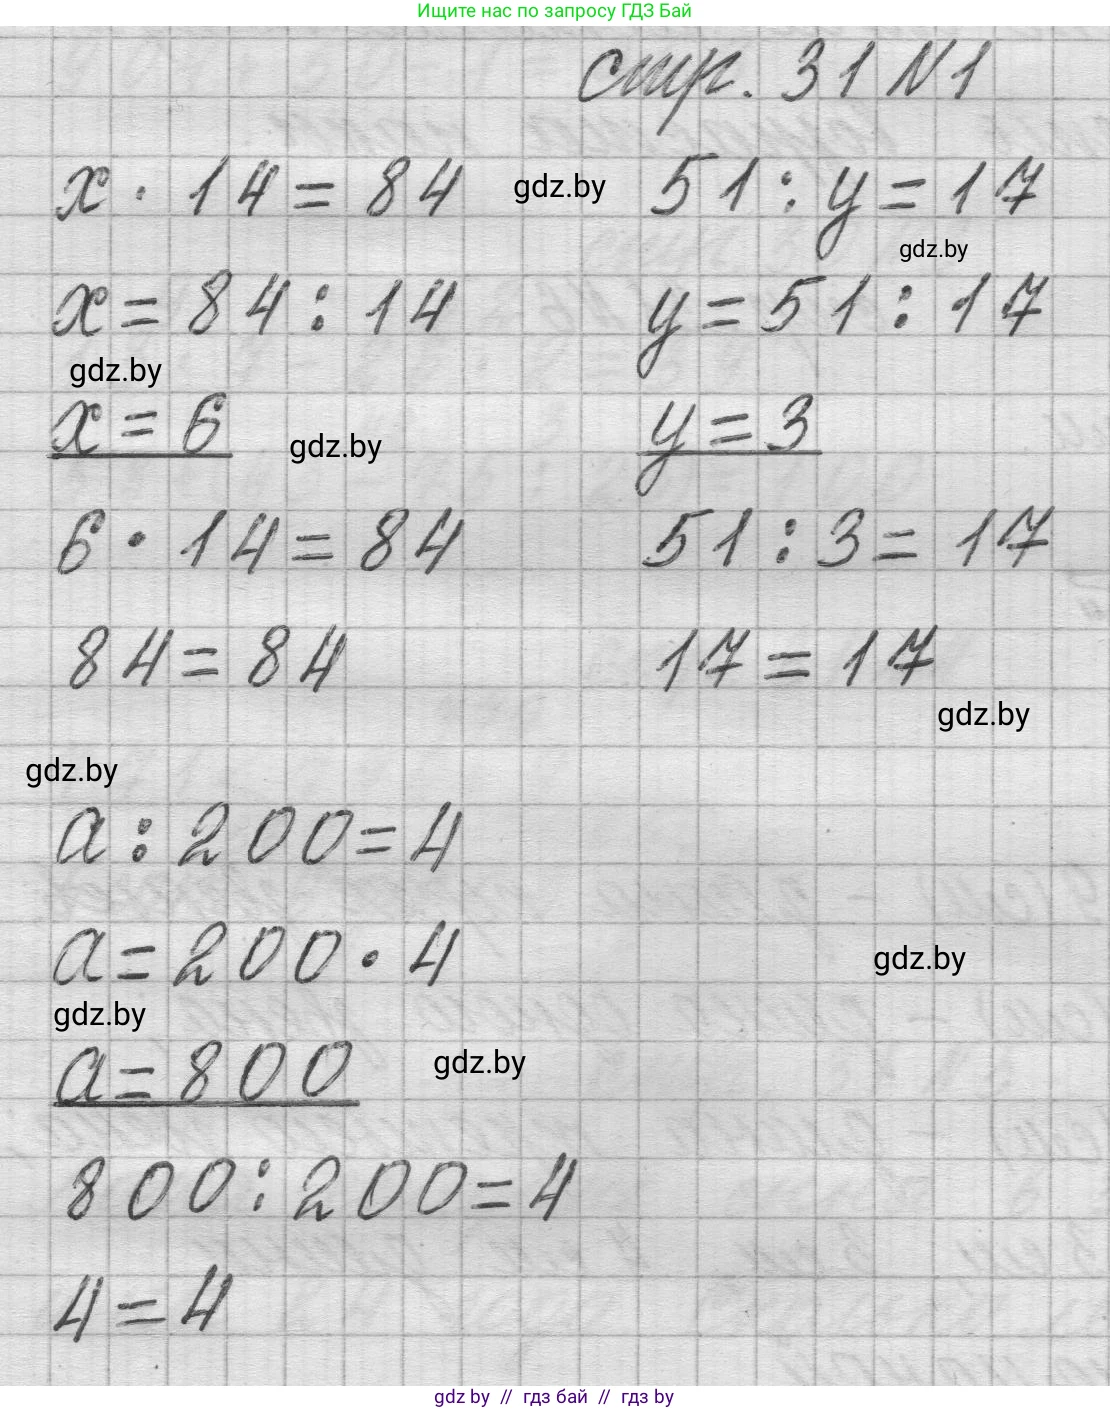 Ищите нас по запросу ГДЗ Бай
стр. 31 №1
x · 14 = 84
gdz.by
51 : y = 17
gdz.by
x = 84 : 14
y = 51 : 17
gdz.by
x = 6
gdz.by
y = 3
6 · 14 = 84
51 : 3 = 17
84 = 84
17 = 17
gdz.by
gdz.by
a : 200 = 4
a = 200 · 4
gdz.by
gdz.by
a = 800
gdz.by
800 : 200 = 4
4 = 4
gdz by // гдз бай // гдз by